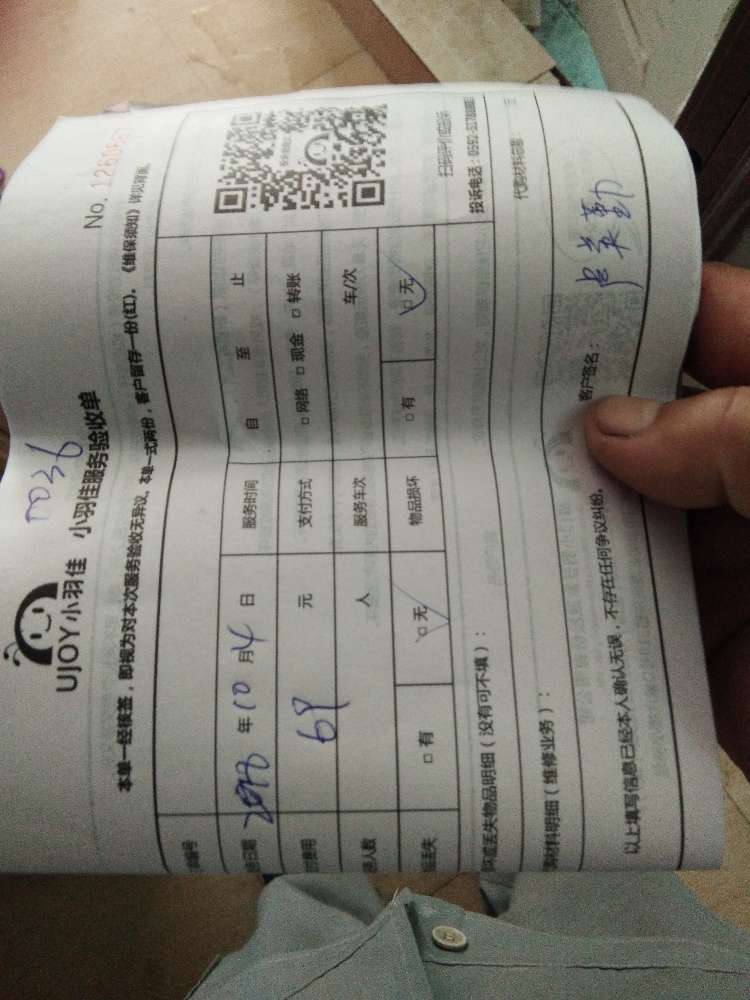 No. 126066
0036
UJOY小羽佳 小羽佳服务验收单
本单一经核签，即视为对本次服务验收无异议，本单一式两份，客户留存一份(红)，《维保须知》详见背面。
编号
日期 年10月4日 服务时间 自 至 止
费用 69 元 支付方式 □网络 □现金 □转账
人数 人 服务车次 车/次
丢失 □有 □无 物品损坏 □有 □无
丢失物品明细（没有可不填）：
扫码评价或投诉
投诉电话：0592-
材料明细（维修业务）：
代购材料总额： 元
以上填写信息已经本人确认无误，不存在任何争议纠纷。
客户签名： 英勤